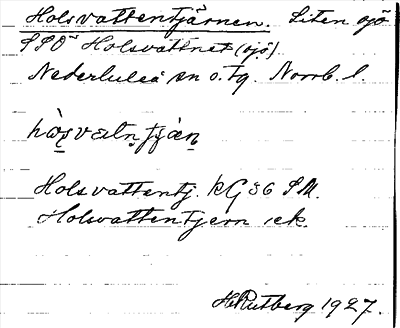 Holsvattentjärnen. Liten sjö
SSO Holsvattnet (sjö)
Nederluleå sn o. tg. Norrb. l.
Holsvattentj. kG 36 SM.
Holsvattentjern ek.
H Rutberg 1927.